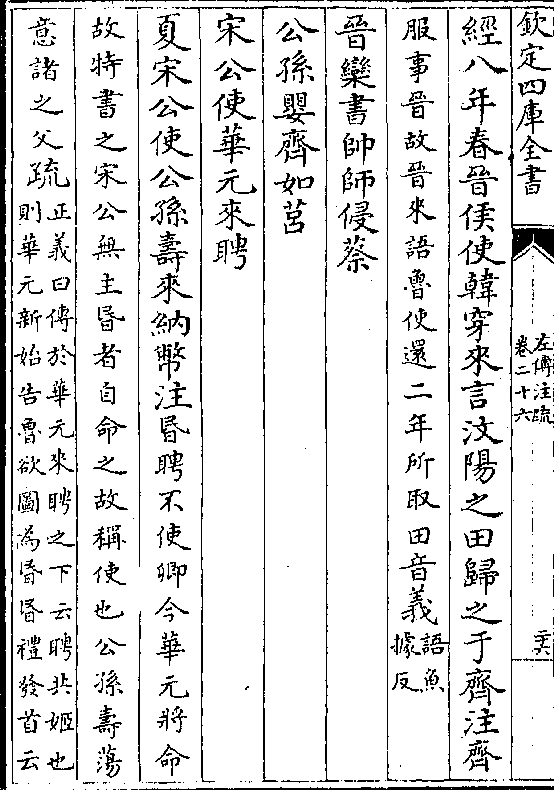 欽定四庫全書
左傳注疏
卷二十六
二六
經八年春晉侯使韓穿來言汶陽之田歸之于齊注齊
服事晉故晉來語魯使還二年所取田音義語魚
據反
晉欒書帥師侵蔡
公孫嬰齊如莒
宋公使華元來聘
夏宋公使公孫壽來納幣注昬聘不使卿今華元將命
故特書之宋公無主昬者自命之故稱使也公孫壽蕩
意諸之父疏正義曰傳於華元來聘之下云聘共姬也
則華元新始告魯欲圖為昬昬禮發首云